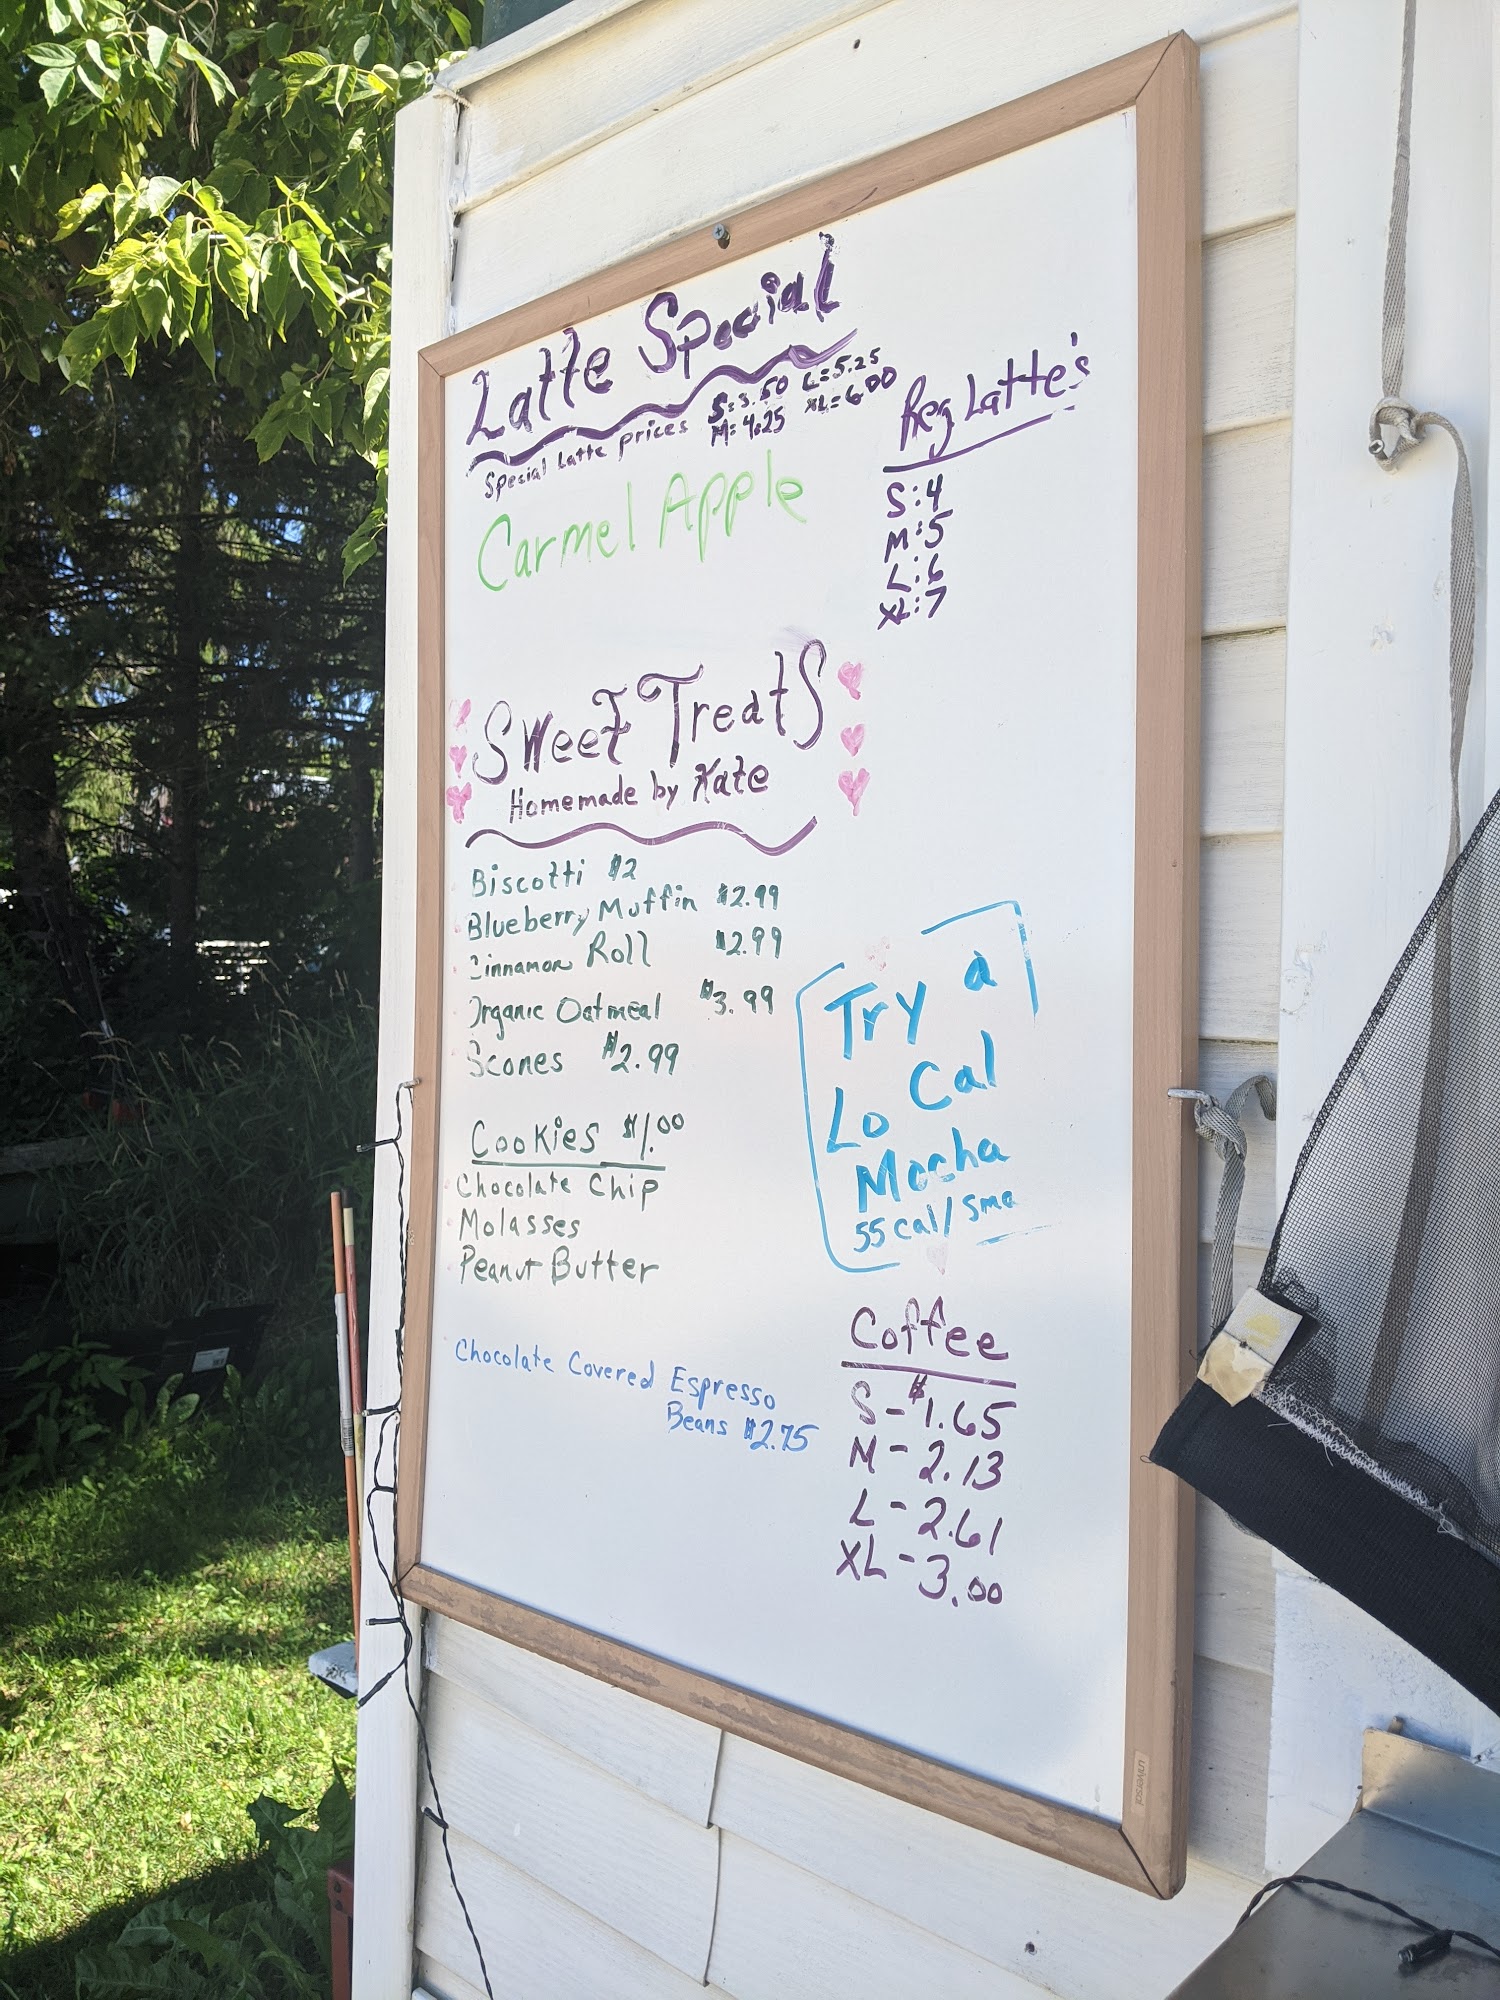 Latte Special
Special Latte prices S:3.50 L=5.25
M=4.25 XL=6.00
Carmel Apple
Reg Latte's
S:4
M:5
L:6
XL:7
SWeeT TreatS
Homemade by Kate
Biscotti $2
Blueberry Muffin $2.99
Cinnamon Roll $2.99
Organic Oatmeal $3.99
Scones $2.99
Cookies $1.00
Chocolate Chip
Molasses
Peanut Butter
Chocolate Covered Espresso
Beans $2.75
Try a
Lo Cal
Mocha
55 cal/sma
Coffee
S-$1.65
M-2.13
L-2.61
XL-3.00
universal